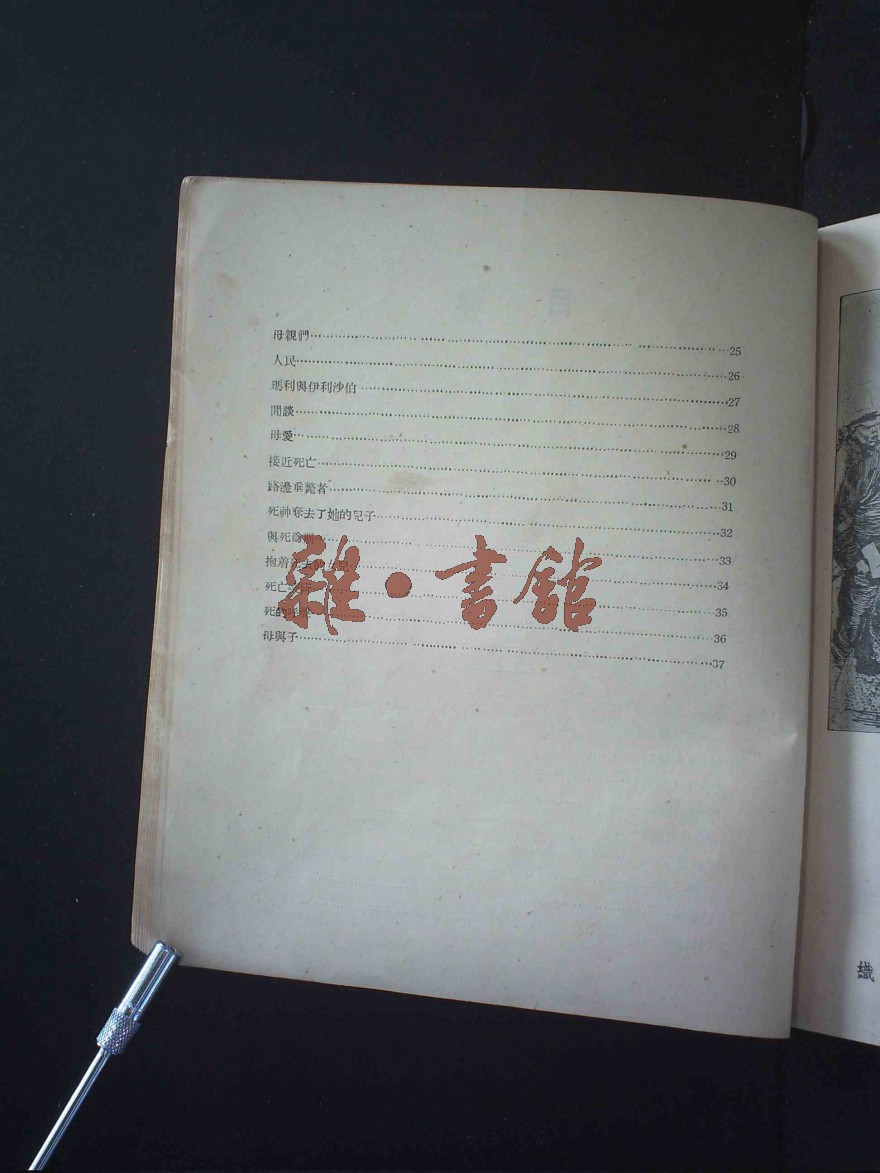 母親們 25
人民 26
瑪利與伊利沙伯 27
閒談 28
母愛 29
接近死亡 30
路邊垂斃者 31
死神奪去了她的兒子 32
與死 33
抱着死去 34
死亡 35
死的 36
母與子 37
雜・書館
織